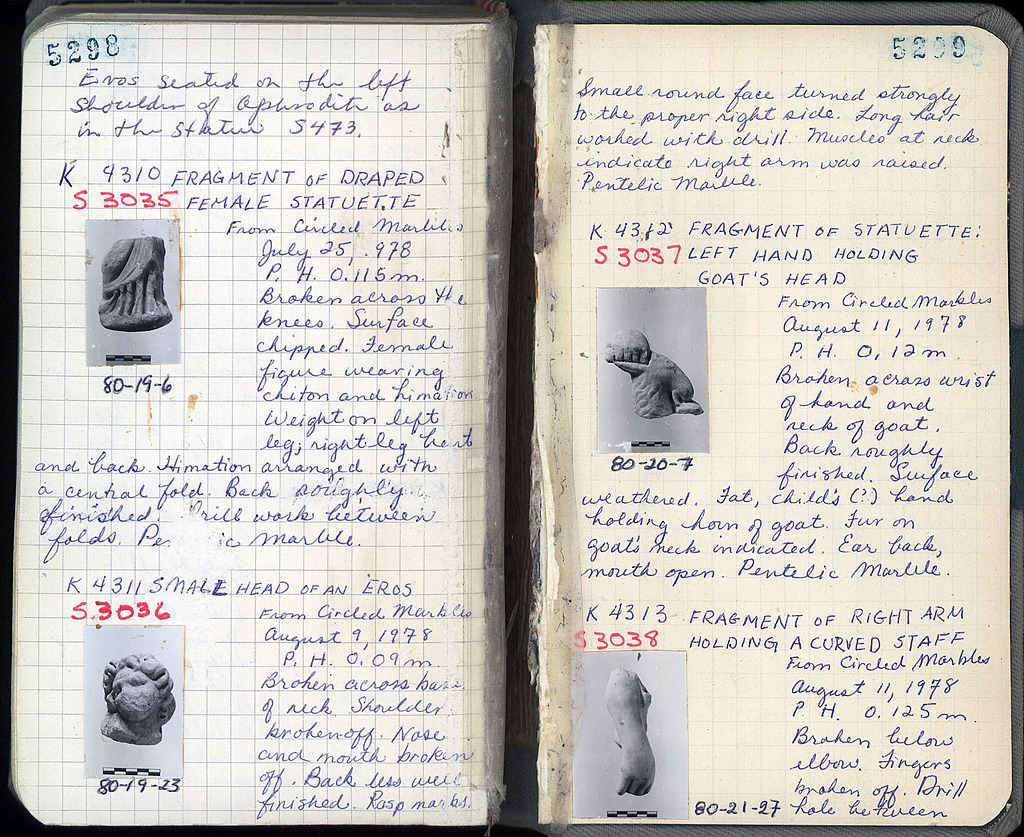 5298
Eros seated on the left
shoulder of Aphrodite as
in the statue S 473.
K 4310 FRAGMENT OF DRAPED
S 3035 FEMALE STATUETTE
From Circled Marbles
July 25, 1978
P. H. 0.115 m.
Broken across the
knees. Surface
chipped. Female
figure wearing
chiton and himation.
Weight on left
leg; right leg bent
80-19-6
and back. Himation arranged with
a central fold. Back roughly
finished. Drill work between
folds. Pe ic Marble.
K 4311 SMALL HEAD OF AN EROS
S 3036
From Circled Marbles
August 9, 1978
P. H. 0.09 m.
Broken across base
of neck. Shoulder
broken off. Nose
and mouth broken
off. Back less well
finished. Rasp marks.
80-19-23
5299
Small round face turned strongly
to the proper right side. Long hair
worked with drill. Muscles at neck
indicate right arm was raised.
Pentelic Marble.
K 4312 FRAGMENT OF STATUETTE:
S 3037 LEFT HAND HOLDING
GOAT'S HEAD
From Circled Marbles
August 11, 1978
P. H. 0.12 m.
Broken across wrist
of hand and
neck of goat.
Back roughly
finished. Surface
80-20-7
weathered. Fat, child's (?) hand
holding horn of goat. Fur on
goat's neck indicated. Ear back,
mouth open. Pentelic Marble.
K 4313 FRAGMENT OF RIGHT ARM
S 3038 HOLDING A CURVED STAFF
From Circled Marbles
August 11, 1978
P. H. 0.125 m.
Broken below
elbow. Fingers
broken off. Drill
80-21-27 hole between